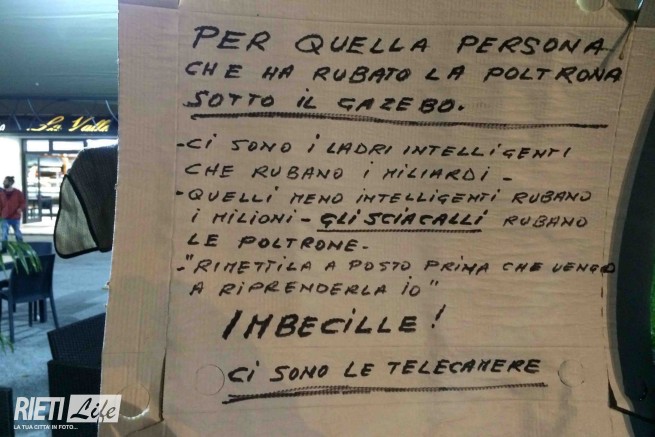 PER QUELLA PERSONA
CHE HA RUBATO LA POLTRONA
SOTTO IL GAZEBO.
- CI SONO I LADRI INTELLIGENTI
CHE RUBANO I MILIARDI -
- QUELLI MENO INTELLIGENTI RUBANO
I MILIONI - GLI SCIACALLI RUBANO
LE POLTRONE.
- "RIMETTILA A POSTO PRIMA CHE VENGO
A RIPRENDERLA IO"
IMBECILLE!
CI SONO LE TELECAMERE
RIETI Life
LA TUA CITTA' IN FOTO...